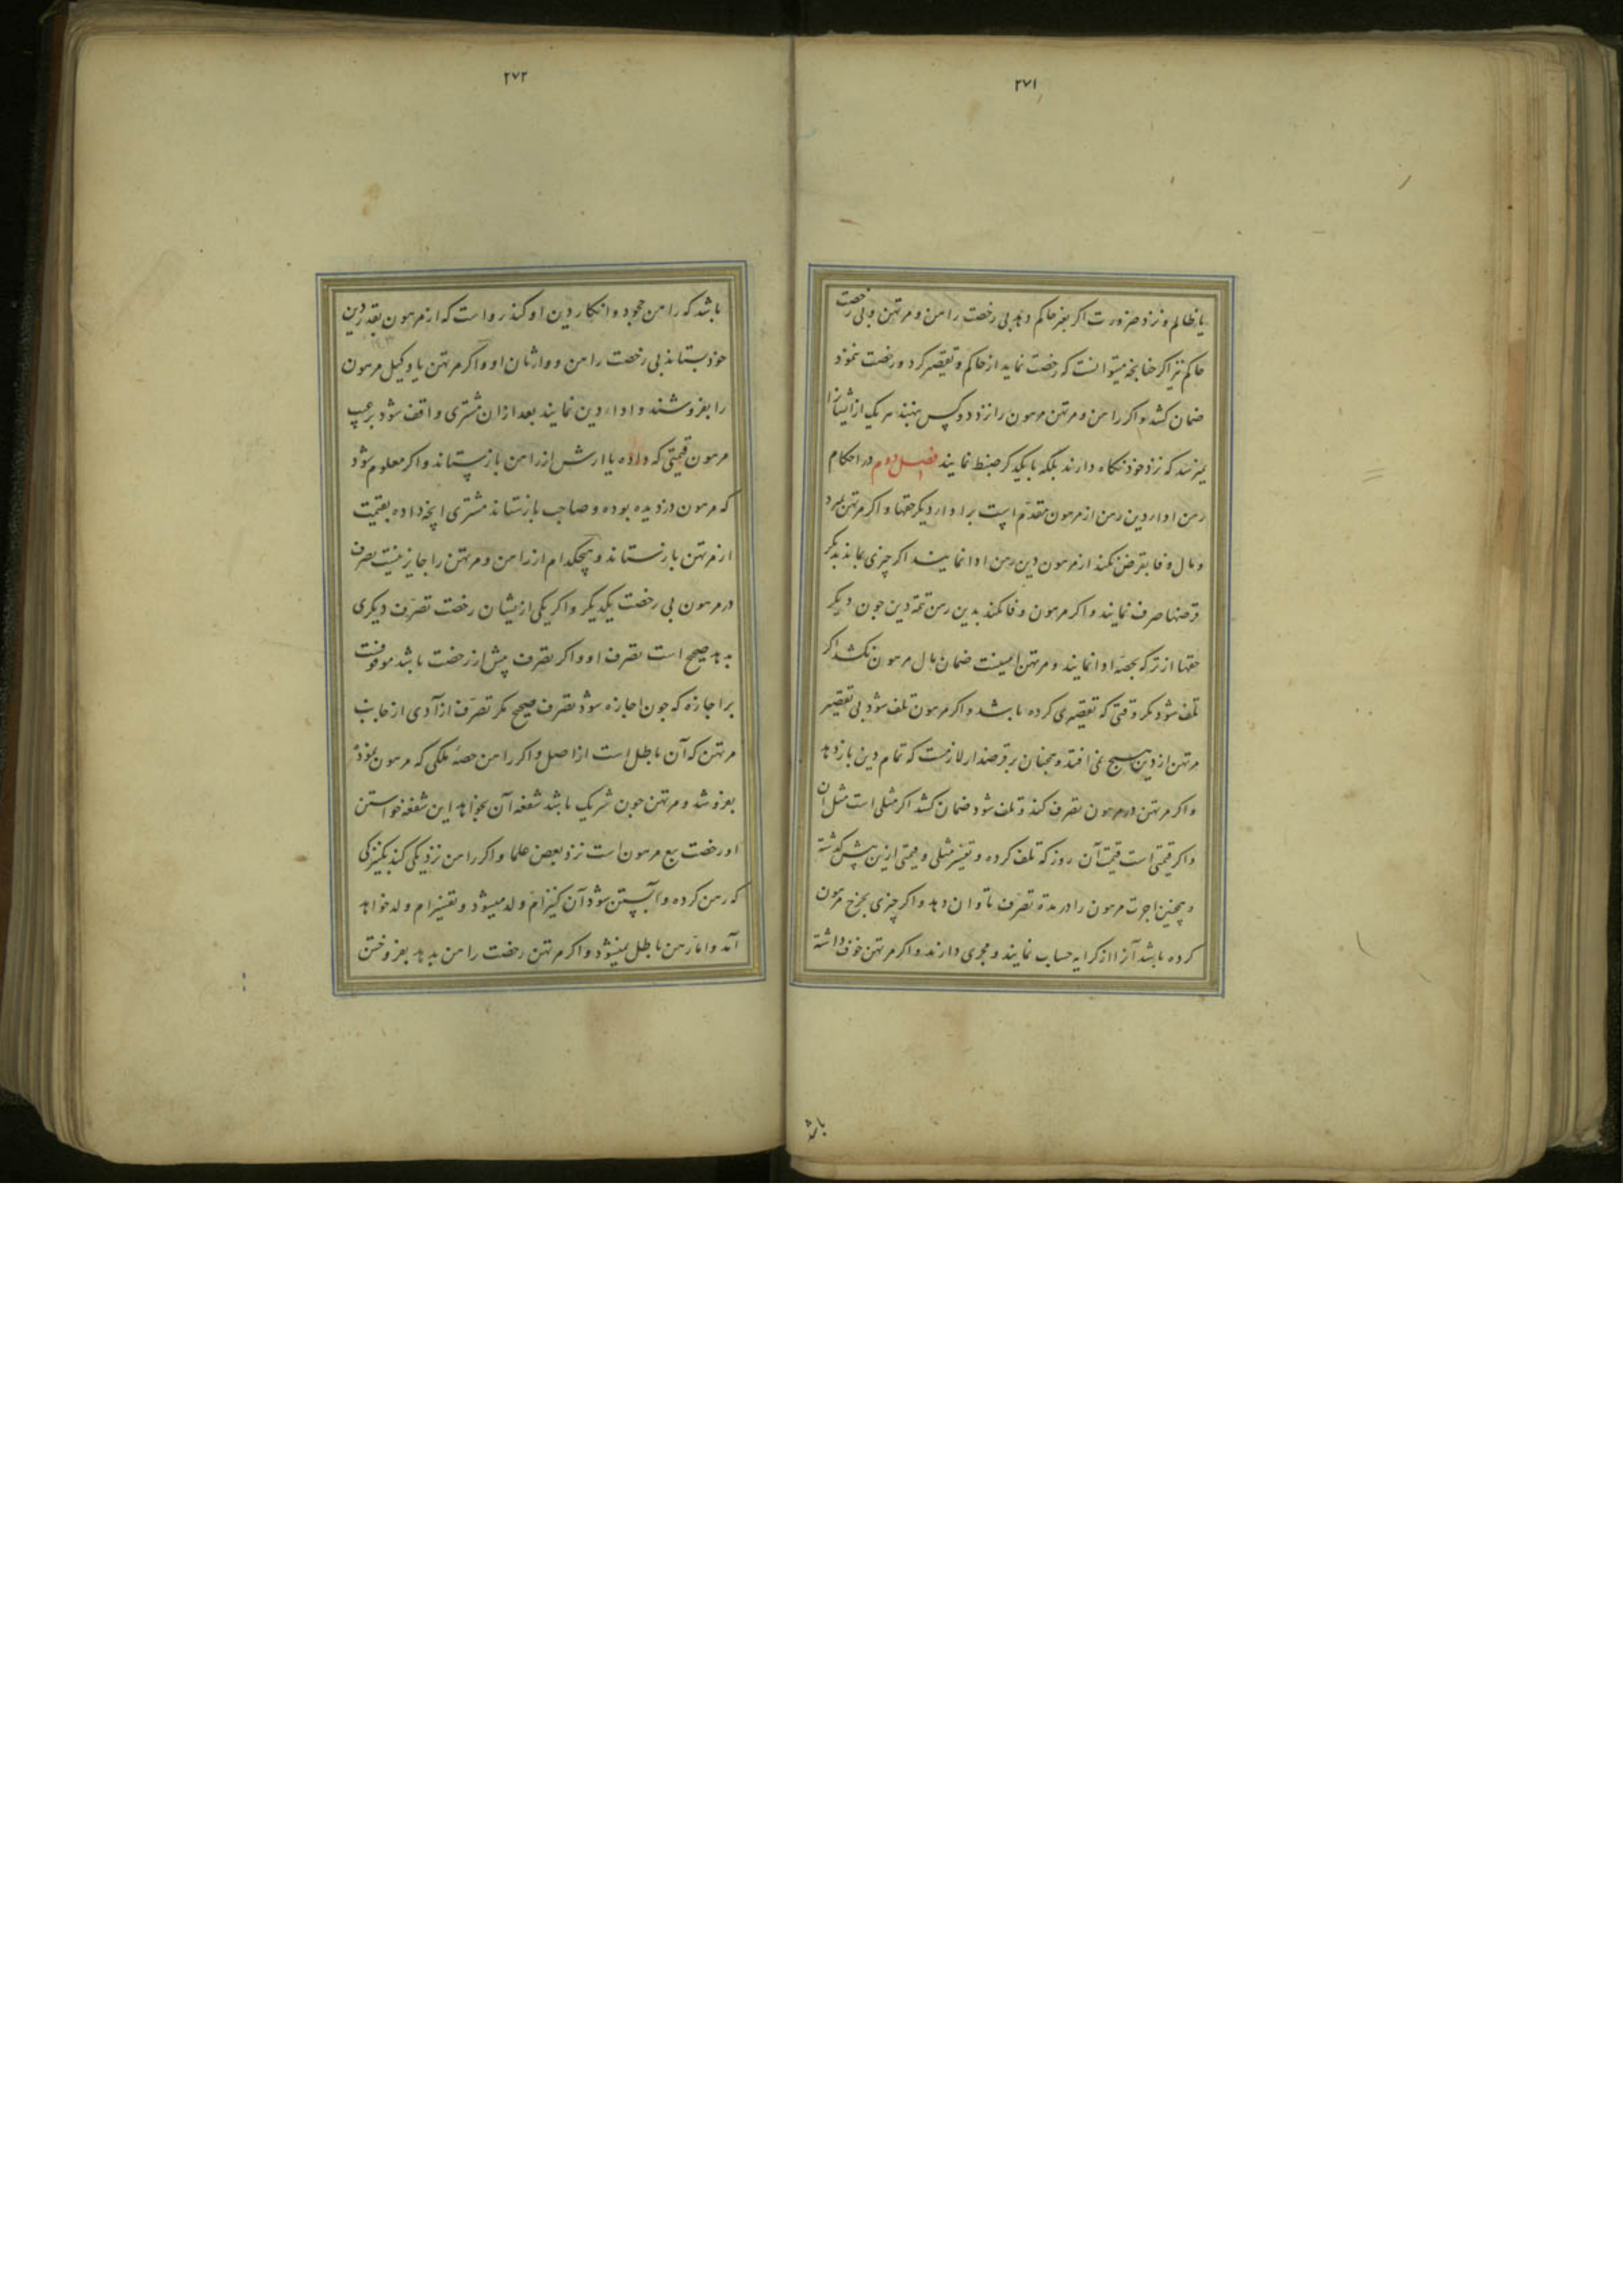 ۲۷۱
یا ظالم و نزد ضرورت اکر بغیر حاکم دهد بی رخصت راهن و مرتهن و بی رخصت
حاکم نیز اکر چنانچه میتوانست که رخصت نماید از حاکم و تقصیر کرد و رخصت ننمود
ضمان کشد و اکر راهن و مرتهن مرهون را نزد دو کس بنهند هر یک از ایشانرا
نمیرسد که نزد خود نکاه دارند بلکه با یکدیکر ضبط نمایند فصل دوم در احکام
رهن اداء دین رهن از مرهون مقدم است بر اداء دیکر حقها و اکر مرتهن بمیرد
و مال وفا بقرض نکند از مرهون دین رهن ادا نمایند اکر چیزی بماند بدیکر
قرضها صرف نمایند و اکر مرهون وفا نکند بدین رهن تتمه دین چون دیکر
حقها از ترکه بحصه ادا نمایند و مرتهن امینست ضمان مال مرهون نکشد اکر
تلف شود مکر وقتی که تقصیری کرده باشد و اکر مرهون تلف شود بی تقصیر
مرتهن از دین هیچ نمی افتد و همچنان بر قرضدار لازمست که تمام دین باز دهد
و اکر مرتهن در مرهون تصرف کند و تلف شود ضمان کشد اکر مثلی است مثل آن
و اکر قیمتی است قیمت آن روز که تلف کرده و تفسیر مثلی و قیمتی ازین پیش کذشته
و همچنین اجرت مرهون را در مدة تصرف تاوان دهد و اکر چیزی بخرج مرهون
کرده باشد آنرا از کرایه حساب نمایند و مجری دارند و اکر مرتهن خوف داشته
باشد
۲۷۲
باشد که راهن جحود و انکار دین او کند رواست که از مرهون بقدر دین
خود بستاند بی رخصت راهن و وارثان او و اکر مرتهن یا وکیل مرهون
را بفروشند و اداء دین نمایند بعد ازان مشتری واقف شود بر عیب
مرهون قیمتی که داده یا ارش از راهن باز ستاند و اکر معلوم شود
که مرهون دزدیده بوده و صاحب باز ستاند مشتری آنچه داده بقیمت
از مرتهن باز ستاند و هیچکدام از راهن و مرتهن را جایز نیست تصرف
در مرهون بی رخصت یکدیکر و اکر یکی ازیشان رخصت تصرف دیکری
بدهد صحیح است تصرف او و اکر تصرف پیش از رخصت باشد موقوفست
بر اجازه که چون اجازه شود تصرف صحیح مکر تصرف ازآدی از جانب
مرتهن که آن باطل است از اصل و اکر راهن حصهٔ ملکی که مرهون نموده
بفروشد و مرتهن چون شریک باشد شفعه آن بخواهد این شفعه خواستن
او رخصت بیع مرهون است نزد بعض علما و اکر راهن نزدیکی کند بکنیزکی
که رهن کرده و آبستن شود آن کنیز ام ولد میشود و تفسیر ام ولد خواهد
آمد و اما رهن باطل نمیشود و اکر مرتهن رخصت راهن بدهد بفروختن